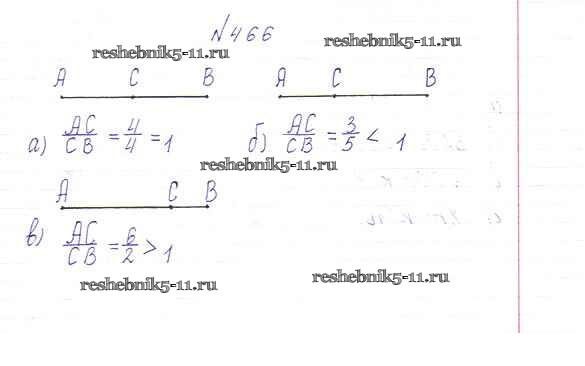 №466
reshebnik5-11.ru reshebnik5-11.ru
A C B A C B
а) AC/CB = 4/4 = 1 б) AC/CB = 3/5 < 1
reshebnik5-11.ru
A C B
в) AC/CB = 6/2 > 1
reshebnik5-11.ru reshebnik5-11.ru